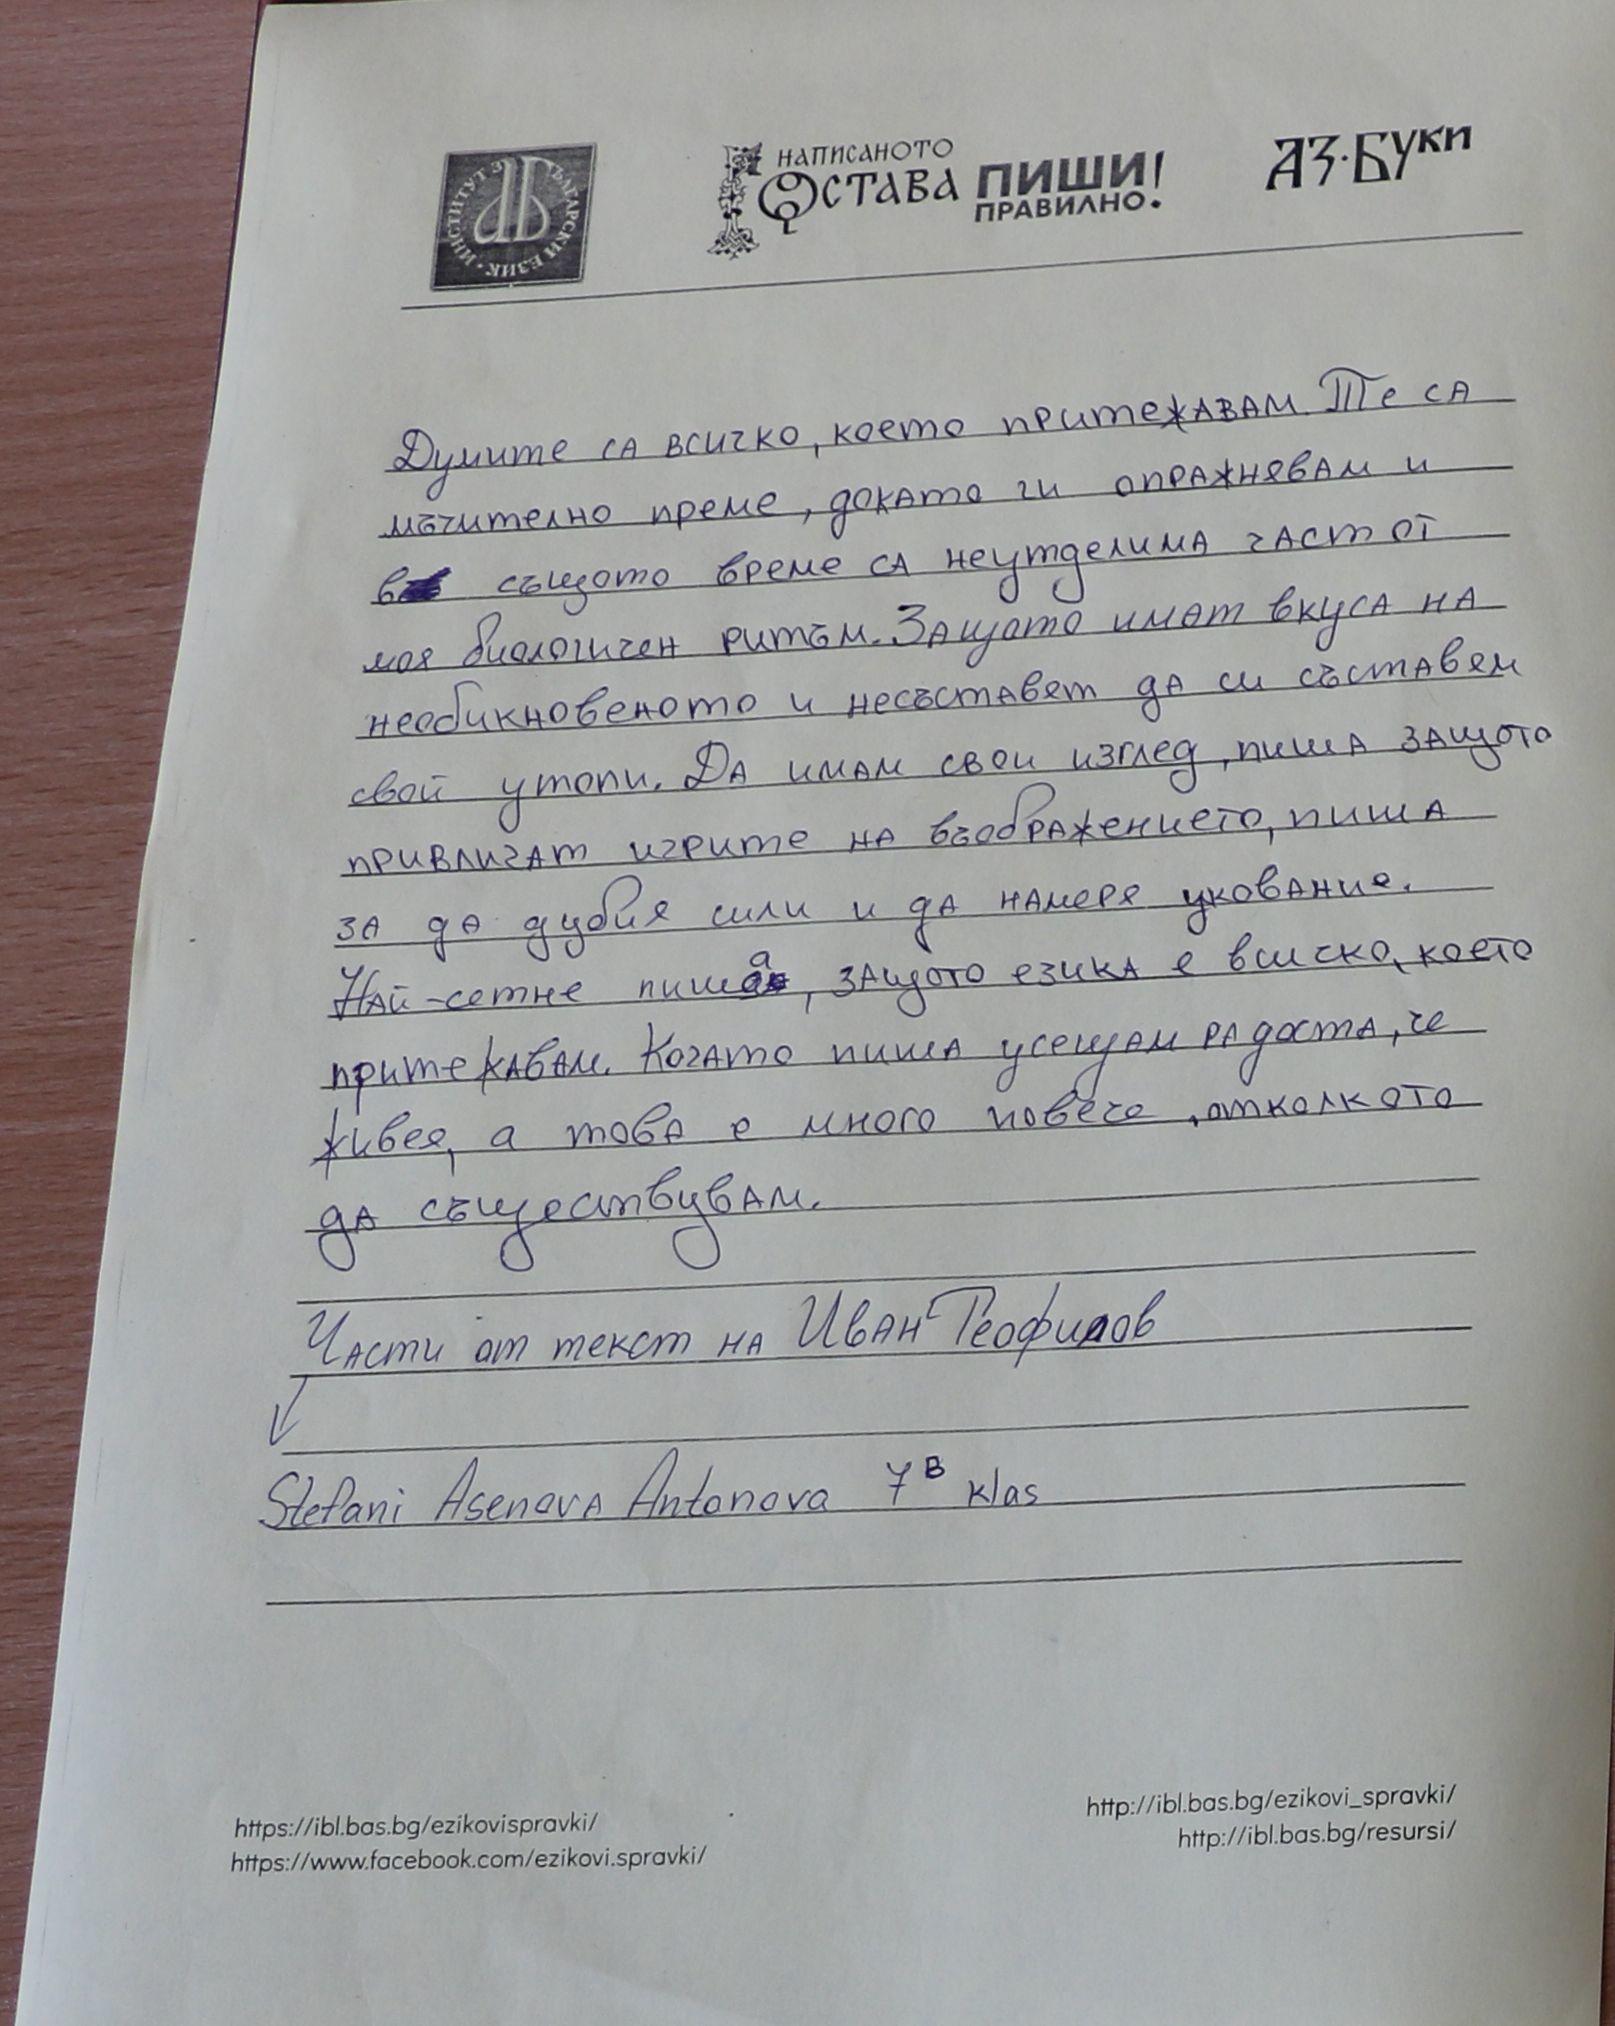 ИНСТИТУТ ЗА БЪЛГАРСКИ ЕЗИК
НАПИСАНОТО ОСТАВА ПИШИ ПРАВИЛНО!
АЗ·БУКИ
Думите са всичко, което притежавам. Те са
мъчително преме, докато ги опражнявам и
в същото време са неутделима част от
моя биологичен ритъм. Защото имат вкуса на
необикновеното и несъставят да си съставем
свой утопи. Да имам свои изглед, пиша защото
привличат игрите на въображението, пиша
за да дубия сили и да намеря укование.
Най-сетне пиша, защото езика е всичко, което
притежавам. Когато пиша усещам радоста, че
живея, а това е много повече, отколкото
да съществувам.
Части от текст на Иван Теофилов
Stefani Asenova Antonova 7В klas
https://ibl.bas.bg/ezikovispravki/
https://www.facebook.com/ezikovi.spravki/
http://ibl.bas.bg/ezikovi_spravki/
http://ibl.bas.bg/resursi/